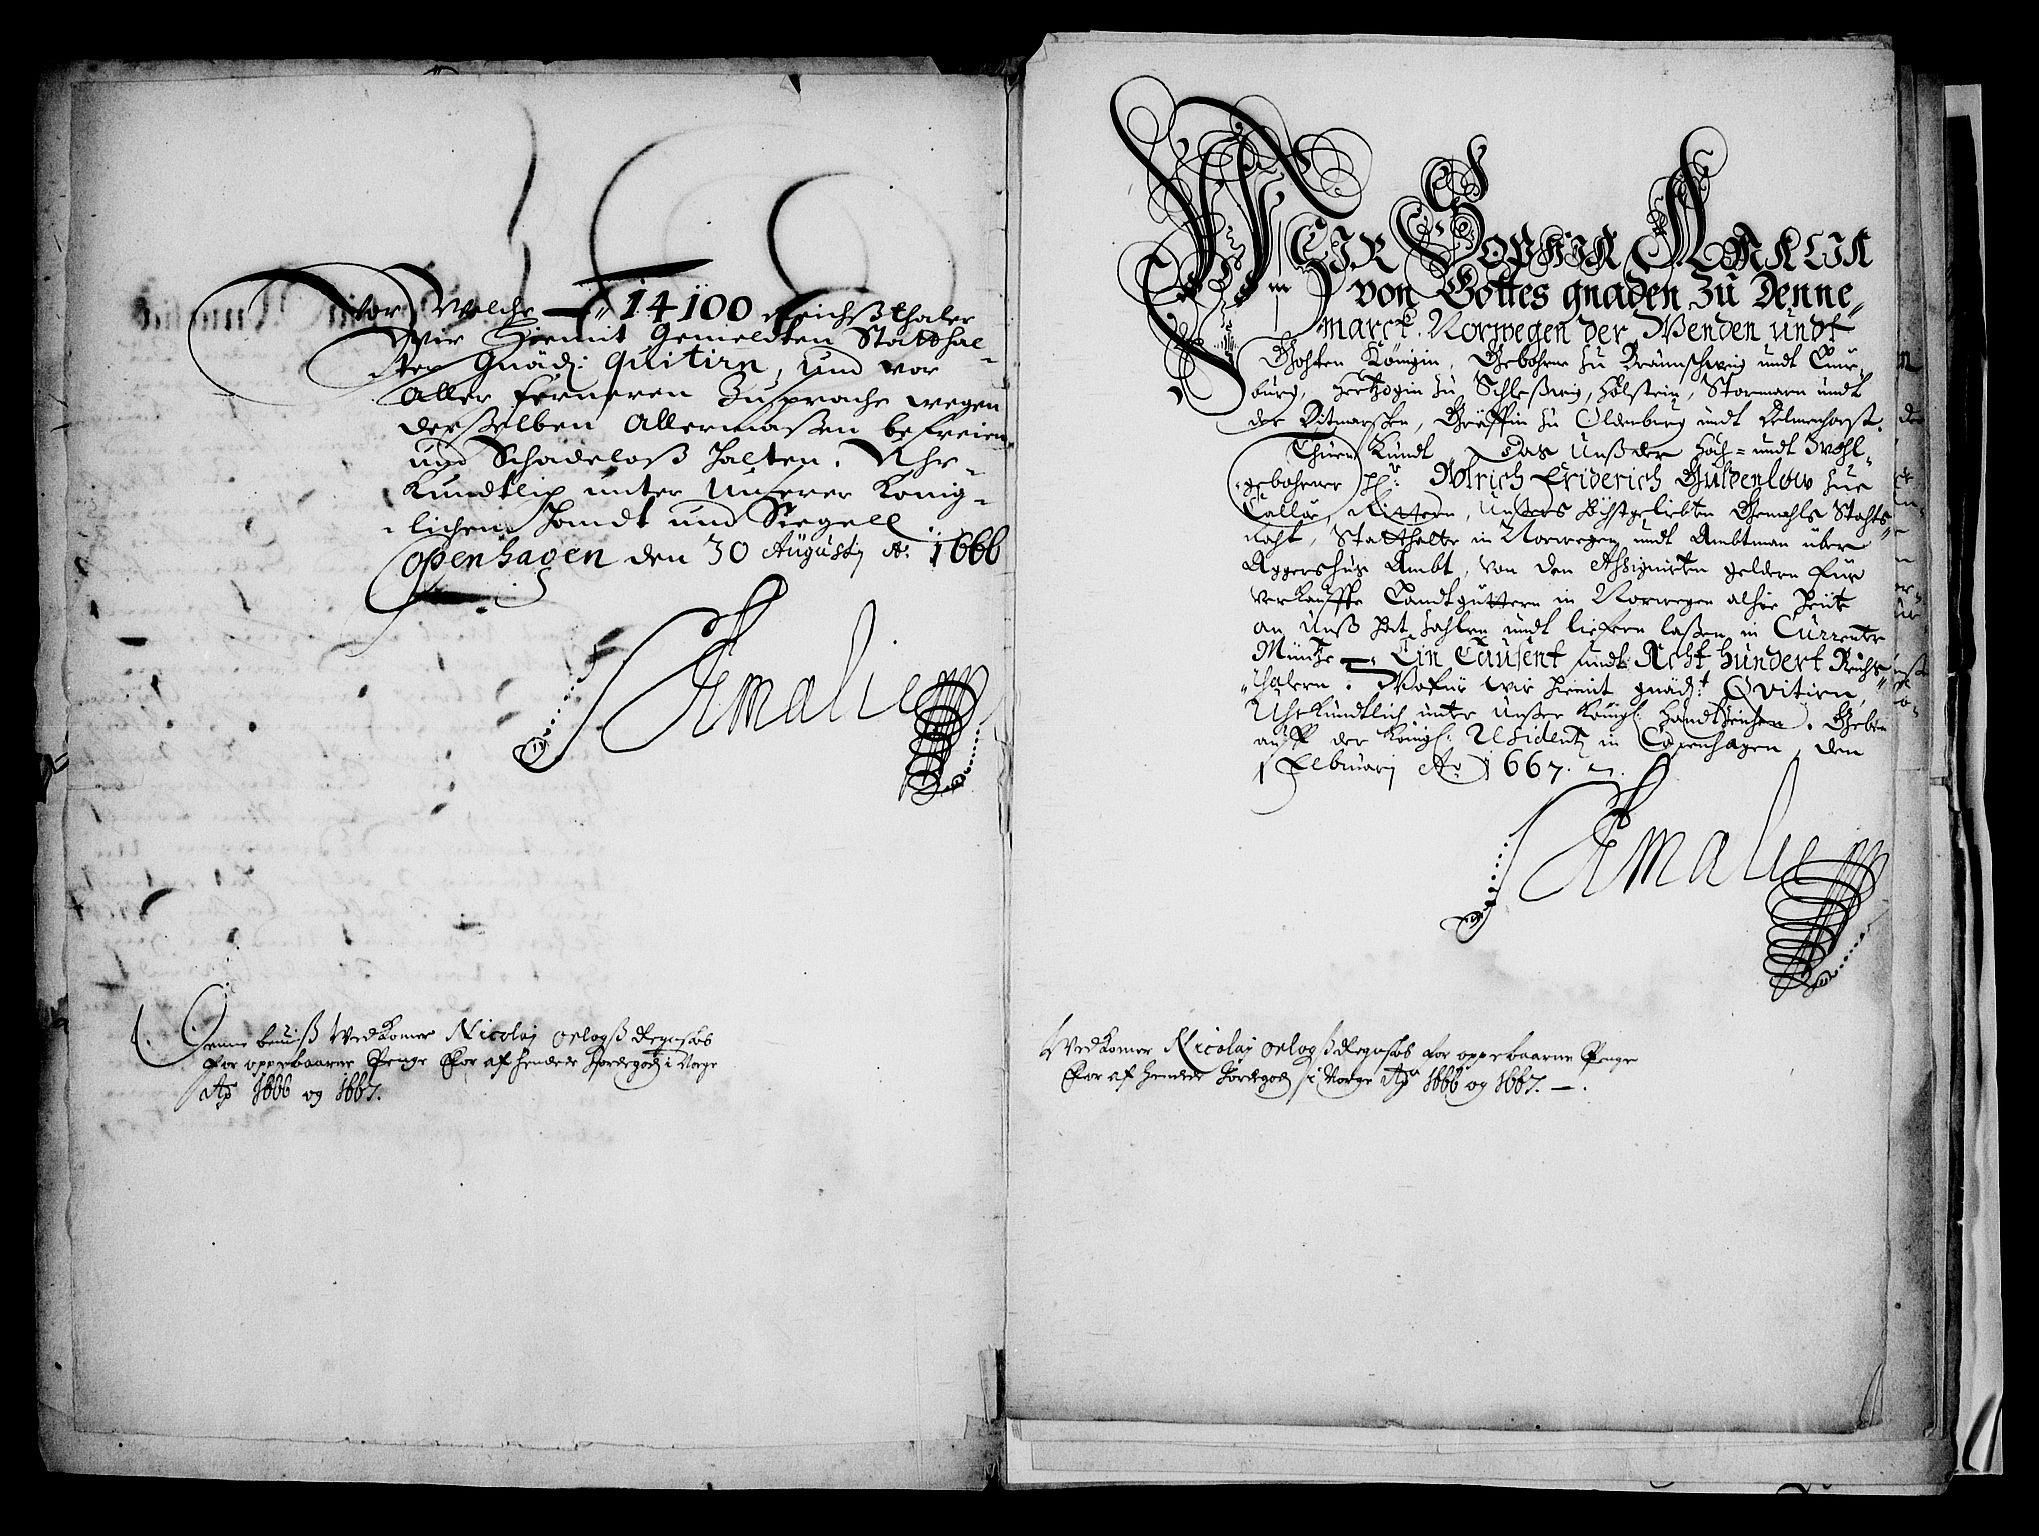 Vor Welche — 14100 Reichßthaler
Wir Hiermit Gemeldten Statthal-
ter Gnäd: quitirn, und vor
Aller ferneren Zusprache wegen
derselben Allermaßen befreien
und Schadeloß halten. Uhr-
kundtlich unter Unserer König-
lichen Handt und Siegell
Copenhagen den 30 Augustij Ao: 1666
S Amalie
Denne beuiß Vedkomer Nicolaj Oelogß Regnskab
for oppebaarne Penge for af hendes Jordegods i Norge
Ao 1666 og 1667.
WEIR SOPHIA AMALIA
von Gottes gnaden Zu Denne-
marck Norwegen der Wenden undt
Gohten Königin, Gebohrne zu Braunschweig undt Lüne-
burg, Hertzogin zu Schleßwig, Holstein, Stormarn undt
der Ditmarschen, Gräffin zu Oldenburg undt Delmenhorst.
Thuen Kundt, Das Unß der Hoch= undt Wohl-
gebohrner Hr: Vlrich Friderich Guldenlow zue
Callöe, Rittern, Unsers Höchstgeliebten Gemahls Stahts
Raht, Statthalter in Norwegen undt Ambtman über
Aggershus Ambt, von den Assignirten geldern für
verkauffte Landtgüttern in Norwegen alhie heüte
an Unß hat zahlen undt liefern laßen in Currenter
Müntze — Ein Tausent undt Acht hundert Reichs
thalern. Wofür wir hiemit gnäd:t Qvitirn,
Uhrkundtlich unter Unßer Königl: Handtzeichen. Geben
auff der Königl: Residentz in Copenhagen, den
1 Februarij Ao 1667.
S Amalie
Vedkomer Nicolaj Oelogß Regnskab for oppebaarne Penge
for af hendes Jordegods i Norge Ao 1666 og 1667. —